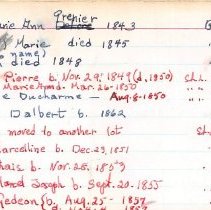 Grenier
rie Ann Before 1843
Marie died 1845
name)
died 1848
Pierre b. Nov. 29, 1849 (d. 1950) St.L.
Marie Amd. Mar. 26-1850
e Ducharme - Aug. 8-1850
Dalbert b. 1862
moved to another lot St.L.
arcelline b. Dec. 29, 1851
hais b. Nov. 25. 1853
lard Joseph b. Sept. 20. 1855
Gedeon b. Aug. 25 - 1857